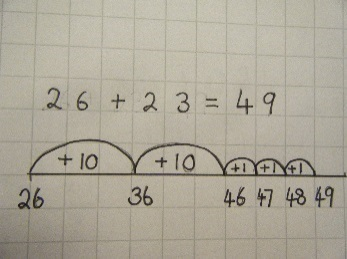 26 + 23 = 49
+10 +10 +1 +1 +1
26 36 46 47 48 49